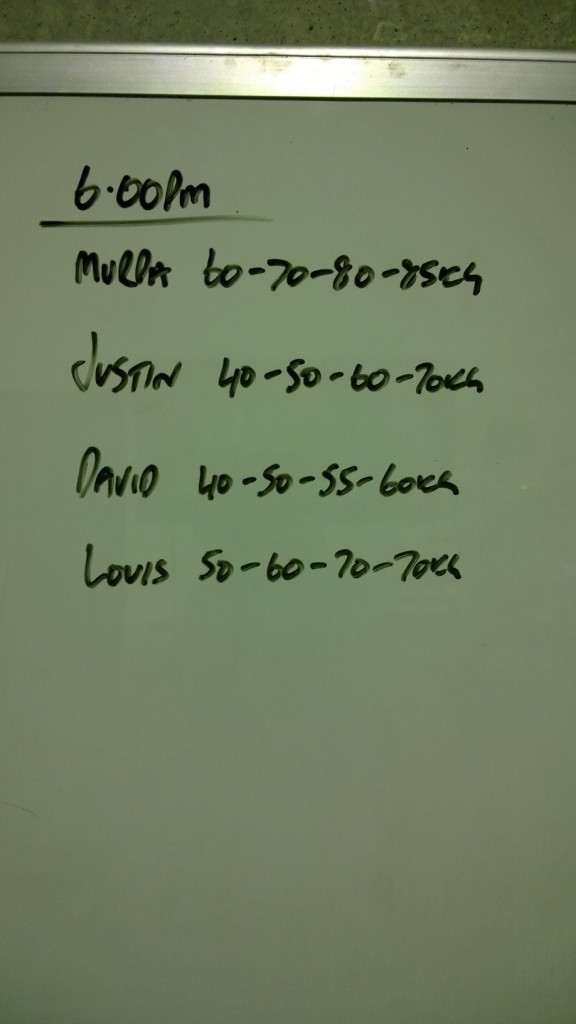 6.00PM
MURPA 60-70-80-85KG
JUSTIN 40-50-60-70KG
DAVID 40-50-55-60KG
LOUIS 50-60-70-70KG